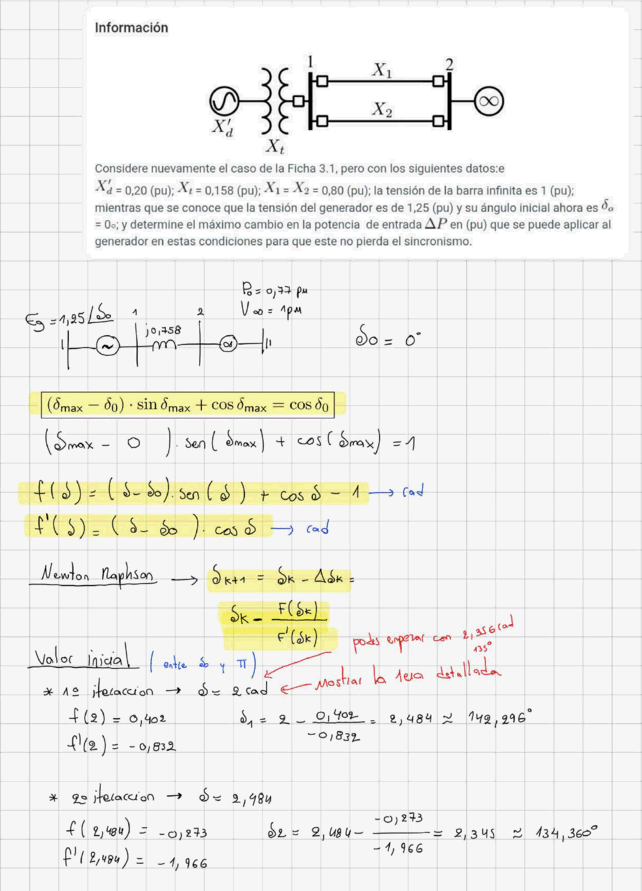 Información
1
2
X₁
X₂
X'd
Xt
∞
Considere nuevamente el caso de la Ficha 3.1, pero con los siguientes datos:e
X'd = 0,20 (pu); Xt = 0,158 (pu); X₁ = X₂ = 0,80 (pu); la tensión de la barra infinita es 1 (pu);
mientras que se conoce que la tensión del generador es de 1,25 (pu) y su ángulo inicial ahora es δo
= 0o; y determine el máximo cambio en la potencia de entrada ΔP en (pu) que se puede aplicar al
generador en estas condiciones para que este no pierda el sincronismo.
P₀ = 0,77 pu
V∞ = 1pu
Eg = 1,25/δo
1
2
j0,758
~
∞
δo = 0°
(δmax − δ0) · sin δmax + cos δmax = cos δ0
(δmax − 0) . sen(δmax) + cos(δmax) = 1
f(δ) = (δ − δo) . sen(δ) + cos δ − 1 → rad
f'(δ) = (δ − δo) . cos δ → rad
Newton Raphson → δk+1 = δk − Δδk =
δk − F(δk)/F'(δk)
podes empezar con 2,356 rad
135°
Valor inicial (entre δo y π)
Mostrar la 1era detallada
* 1º iteraccion → δ = 2 rad
f(2) = 0,402
δ1 = 2 − 0,402/−0,832 = 2,484 ≈ 142,296°
f'(2) = −0,832
* 2º iteraccion → δ = 2,484
f(2,484) = −0,273
δ2 = 2,484 − −0,273/−1,966 = 2,345 ≈ 134,360°
f'(2,484) = −1,966